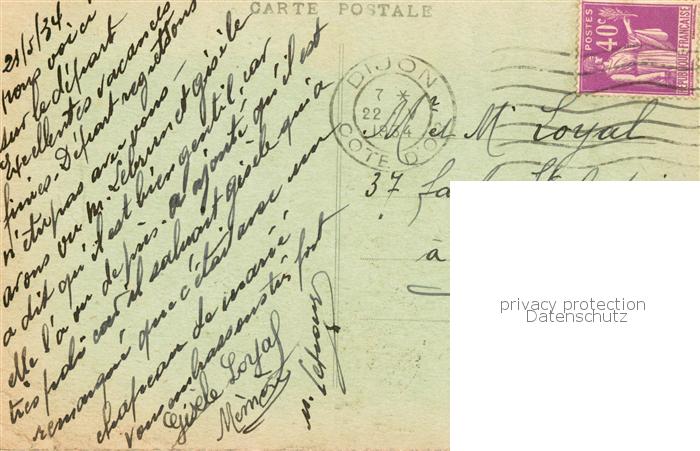 CARTE POSTALE
21/5/34
nous voici
sur le départ
Excellentes vacances
finies. Départ regrettons
n'être pas avec vous -
avons vu M. Lebrun et Gisèle
a dit qu'il est bien gentil car
elle l'a vu de près. a ajouté qu'il est
très poli car il saluait Gisèle qui a
remarqué que c'était avec un
chapeau de marié
vous embrassons très fort
Gisèle Loyal
Mémé
POSTES
40c
REPUBLIQUE FRANÇAISE
DIJON
7 *
22
1934
COTE D'OR
Mr et Me Loyal
37
à
privacy protection
Datenschutz